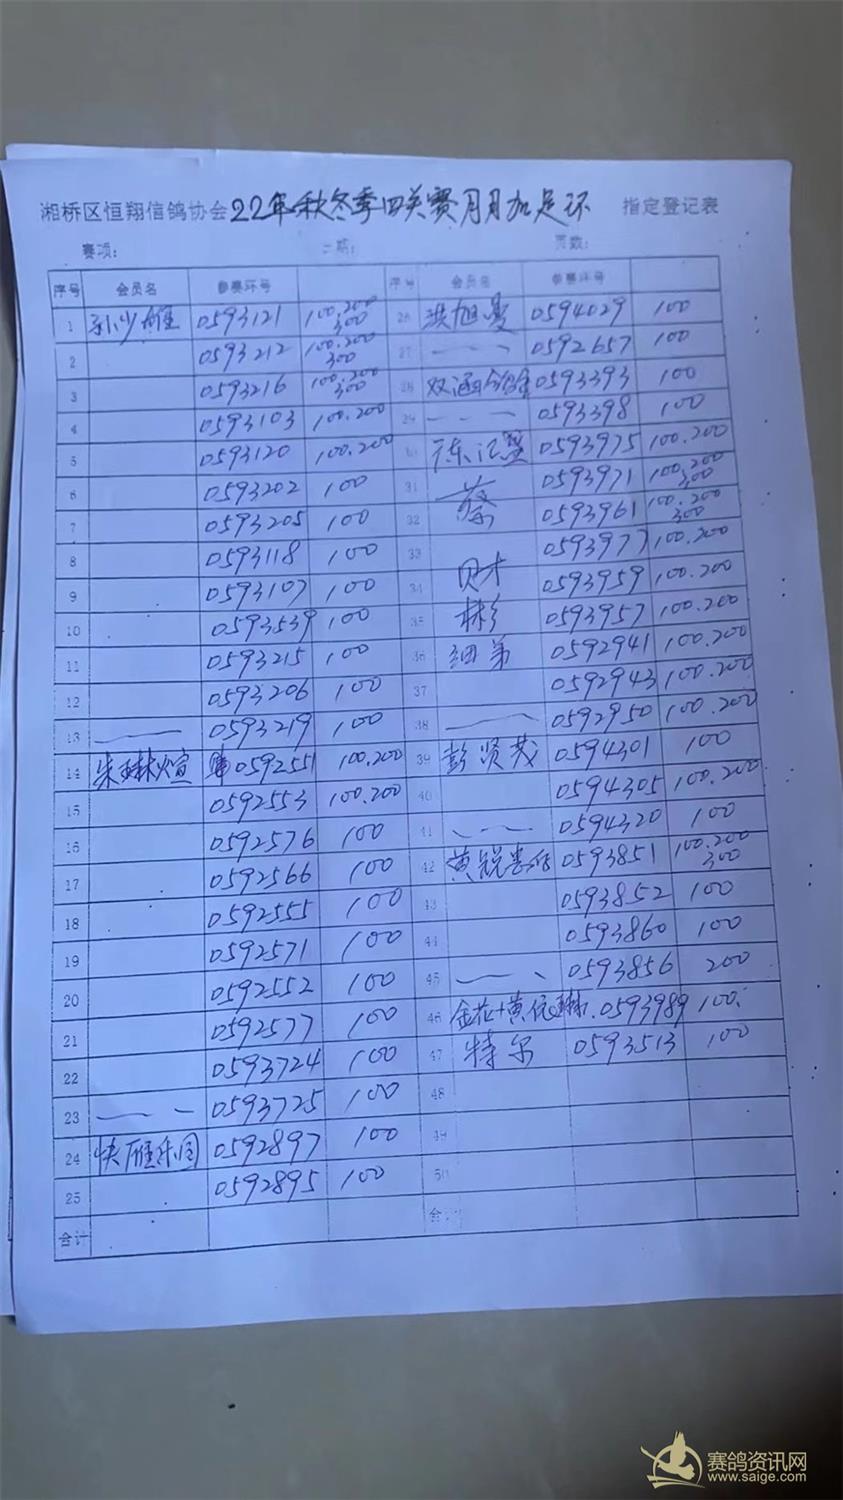 湘桥区恒翔信鸽协会22年秋冬季四关赛月月加足环 指定登记表
赛项: 日期: 页数:
序号 会员名 参赛环号 序号 会员名 参赛环号
1 0593121 100.200 300 26 洪旭曼 0594029 100
2 0593212 100.200 300 27 0592657 100
3 0593216 100.200 300 28 双涵 0593393 100
4 0593103 100.200 29 0593398 100
5 0593120 100.200 30 0593975 100.200
6 0593202 100 31 0593971 100.200 300
7 0593205 100 32 蔡 0593961 100.200 300
8 0593118 100 33 0593977 100.200
9 0593107 100 34 财 0593959 100.200
10 0593539 100 35 彬 0593957 100.200
11 0593215 100 36 细弟 0592941 100.200
12 0593206 100 37 0592943 100.200
13 0593219 100 38 0592950 100.200
14 0592551 100.200 39 彭贤茂 0594301 100
15 0592553 100.200 40 0594305 100.200
16 0592576 100 41 0594320 100
17 0592566 100 42 黄锐 0593851 100.200 300
18 0592555 100 43 0593852 100
19 0592571 100 44 0593860 100
20 0592552 100 45 0593856 200
21 0592577 100 46 0593989 100
22 0593724 100 47 特尔 0593513 100
23 0593725 100 48
24 快雁乐园 0592897 100 49
25 0592895 100 50
合计 合
赛鸽资讯网
www.saige.com